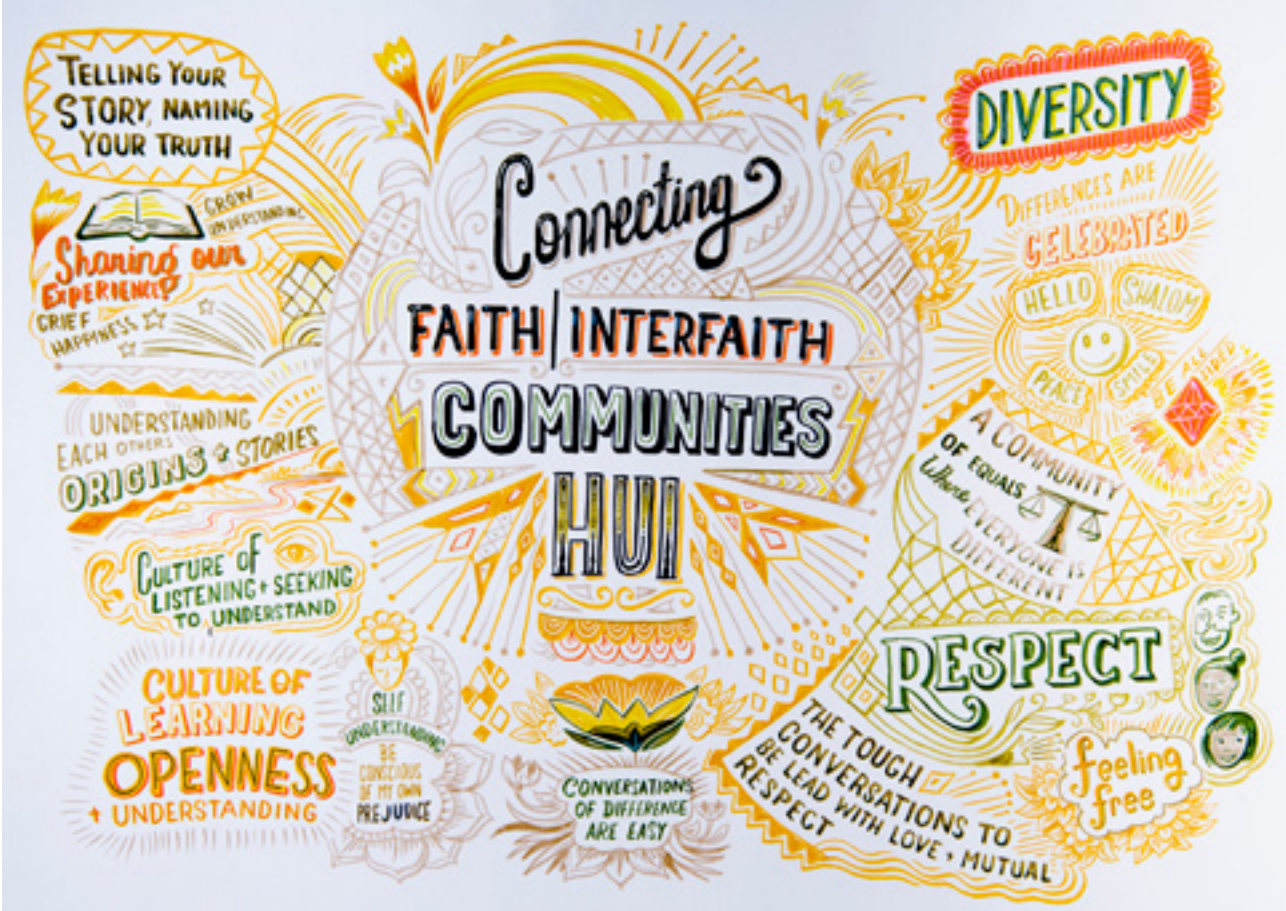 TELLING YOUR
STORY, NAMING
YOUR TRUTH
GROW
UNDERSTANDING
Sharing our
EXPERIENCE?
GRIEF
HAPPINESS
UNDERSTANDING
EACH OTHERS
ORIGINS + STORIES
CULTURE OF
LISTENING + SEEKING
TO UNDERSTAND
CULTURE OF
LEARNING
OPENNESS
+ UNDERSTANDING
SELF
UNDERSTANDING
BE
CONSCIOUS
OF MY OWN
PREJUDICE
Connecting
FAITH/INTERFAITH
COMMUNITIES
HUI
CONVERSATIONS
OF DIFFERENCE
ARE EASY
DIVERSITY
DIFFERENCES ARE
CELEBRATED
HELLO
SHALOM
PEACE
SMILE
A COMMUNITY
OF EQUALS
Where EVERYONE IS
DIFFERENT
RESPECT
THE TOUGH
CONVERSATIONS TO
BE LEAD WITH LOVE + MUTUAL
RESPECT
feeling
free